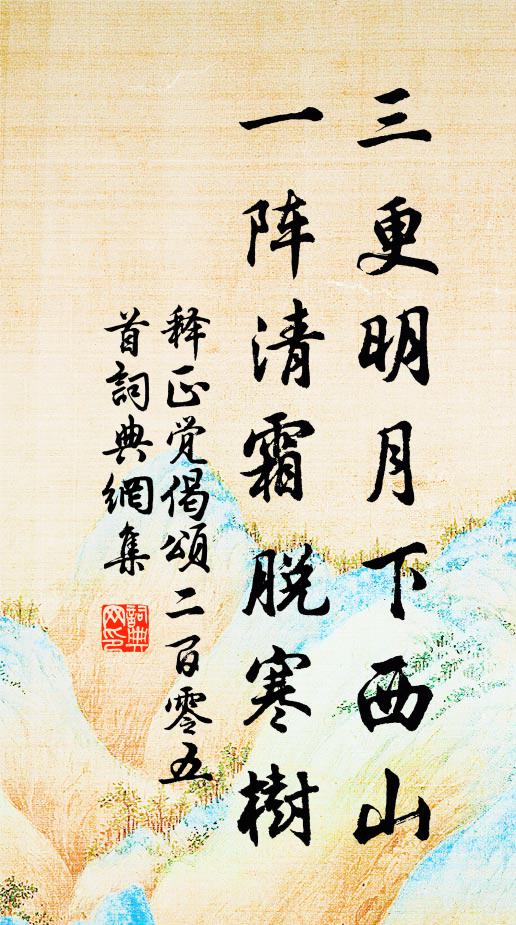 三更明月下西山
一阵清霜脱寒樹
释正觉偈頌二百零五
首詞典網集
詞典